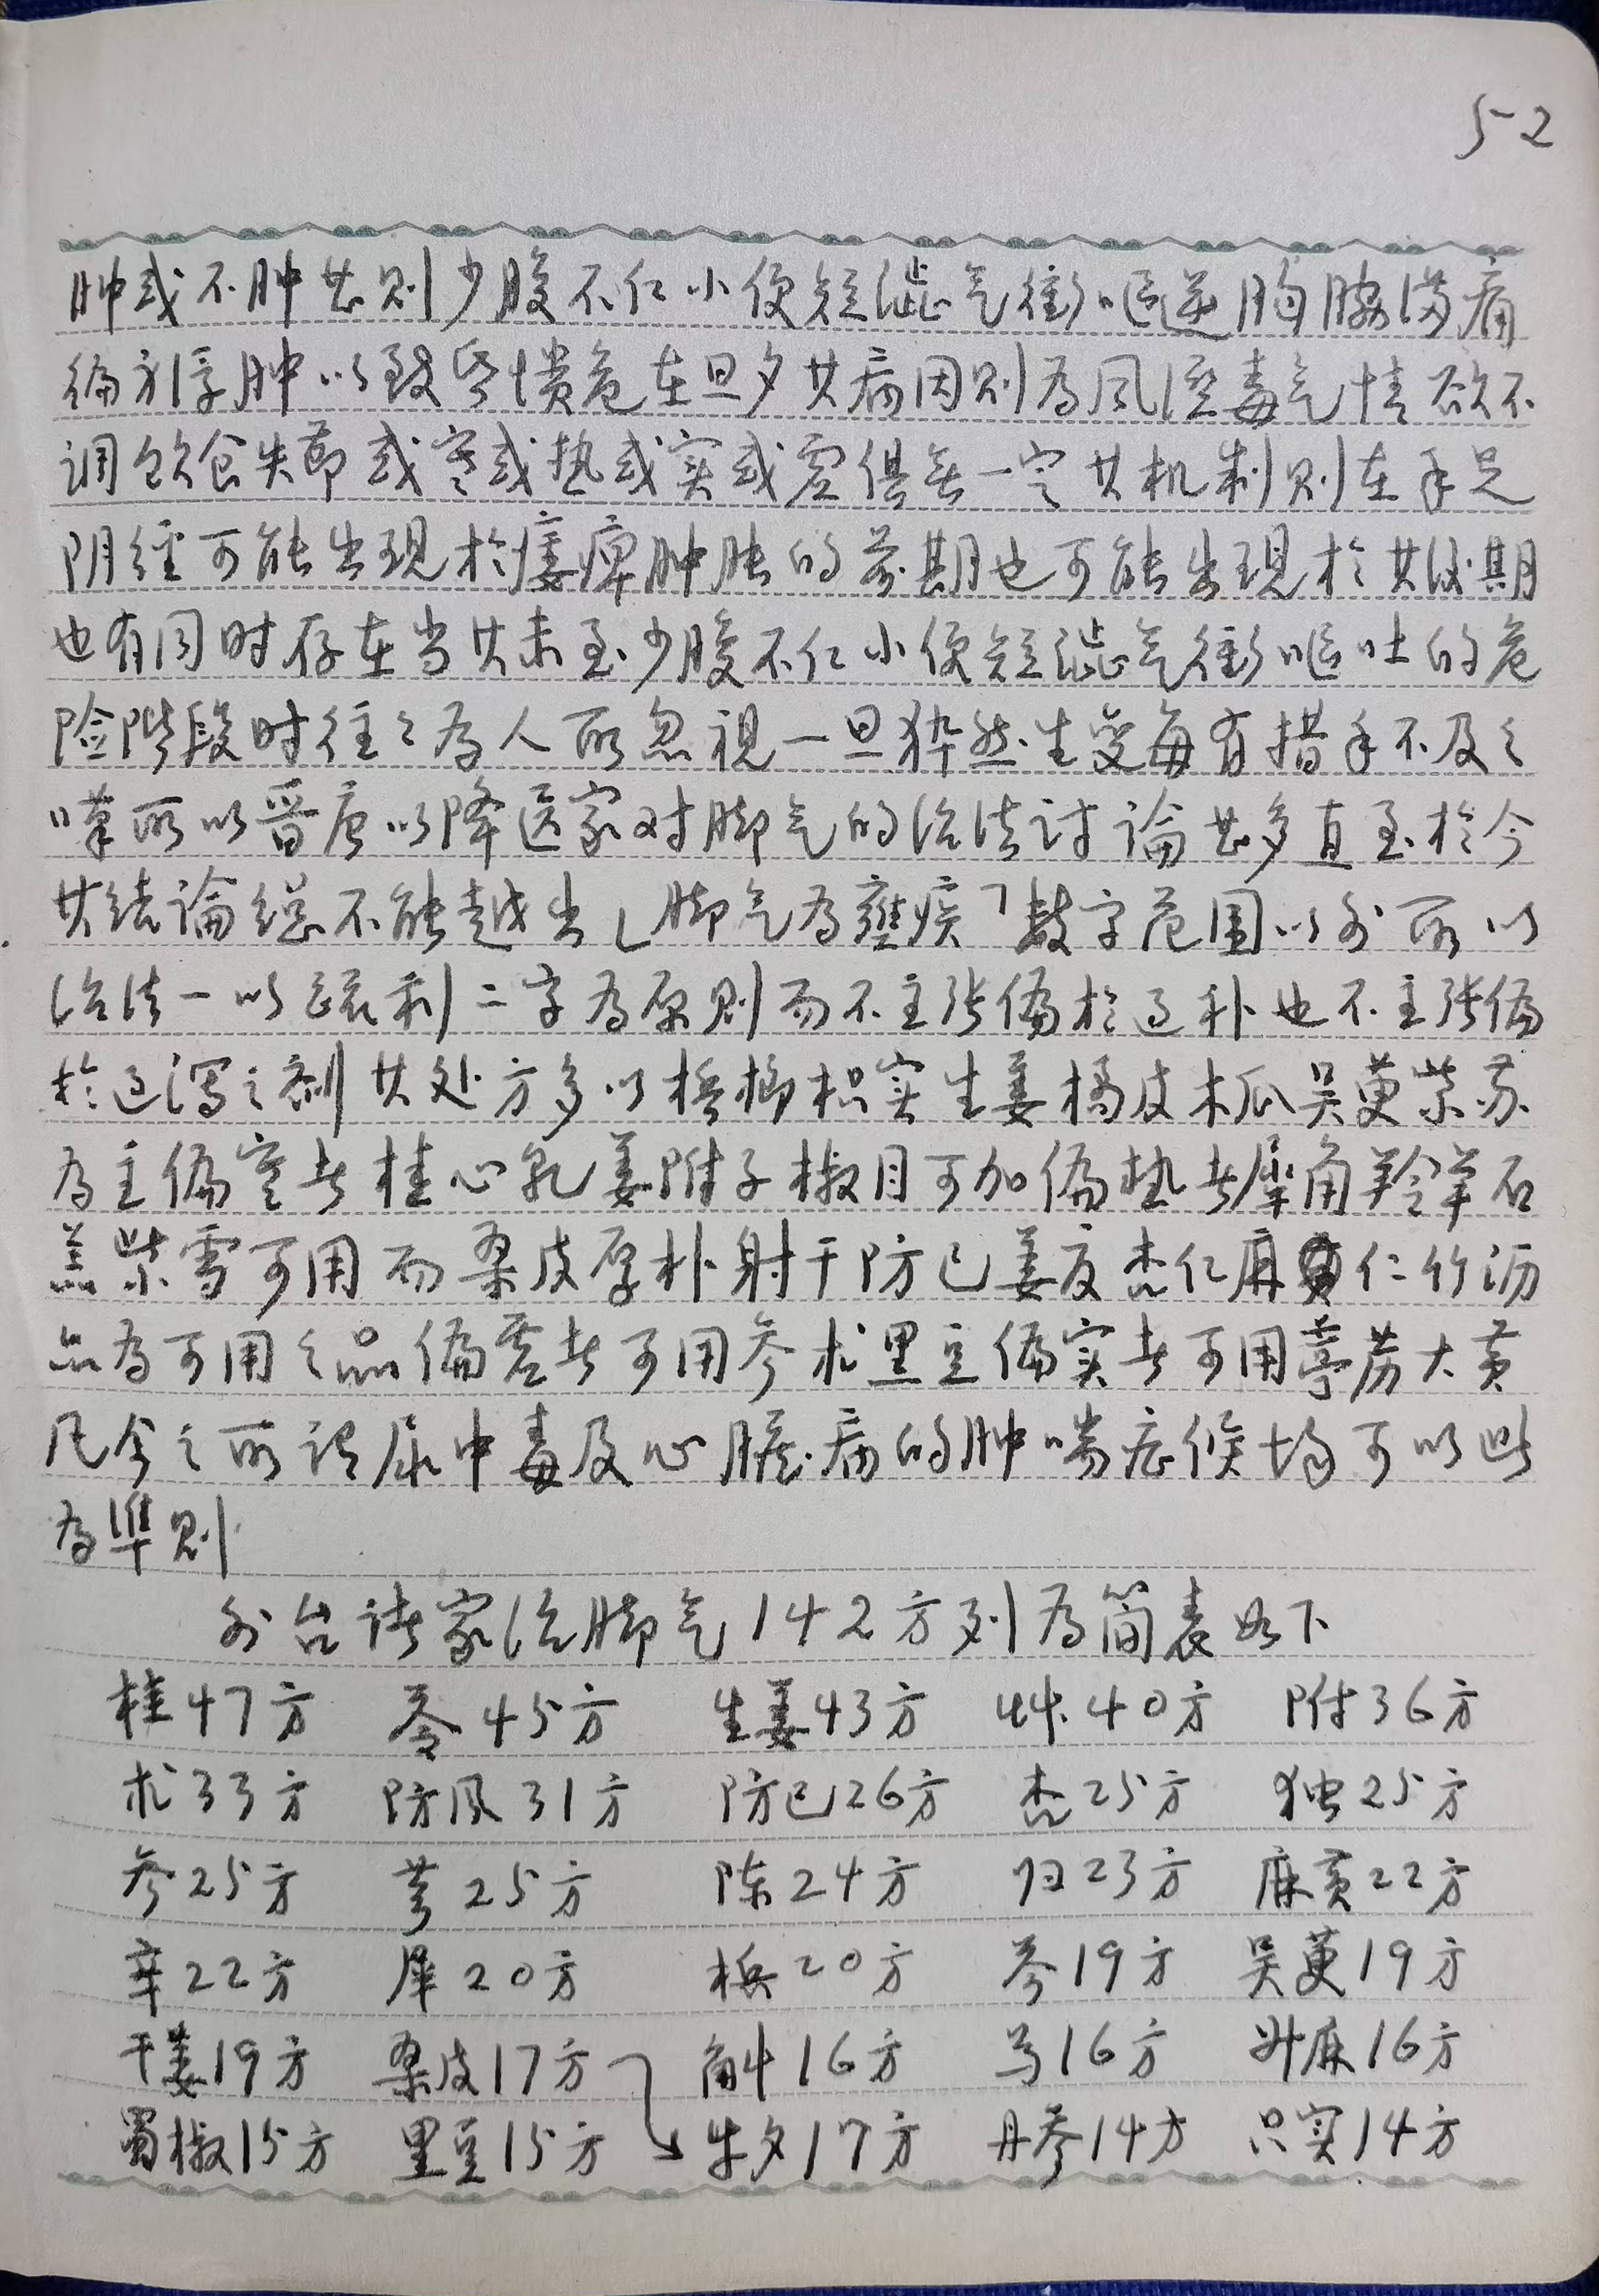 5-2
肿或不肿甚则少腹不仁小便短澁气衝呕逆胸脇满痛
徧身浮肿以致昏愦危在旦夕其病因则为风湿毒气情欲不
调饮食失节或寒或热或实或虚俱无一定其机制则在手足
阴经可能出现於痿痹肿胀的前期也可能出现於其後期
也有同时存在当其未至少腹不仁小便短澁气衝呕吐的危
险階段时往々为人所忽视一旦猝然生变每有措手不及之
嘆所以晋唐以降医家对脚气的治法讨論甚多直至於今
其结論總不能越出「脚气为壅疾」数字范围以外所以
治法一以疏利二字为原则而不主张偏於过补也不主张偏
於过泻之剂其处方多以槟榔枳实生姜橘皮木瓜吴萸紫苏
为主偏寒者桂心乳姜附子椒目可加偏热者犀角羚羊石
羔紫雪可用而桑皮厚朴射干防已姜夏杏仁麻黄仁竹沥
亦为可用之品偏虚者可用参术黑豆偏实者可用葶苈大黄
凡今之所谓尿中毒及心臟病的肿喘症候均可以此
为準则
外台诸家治脚气142方列为简表如下
桂47方 苓45方 生姜43方 艸40方 附36方
术33方 防风31方 防已26方 杏25方 独25方
参25方 芎25方 陈24方 归23方 麻黄22方
辛22方 犀20方 槟20方 芩19方 吴萸19方
干姜19方 桑皮17方 斛16方 芍16方 升麻16方
蜀椒15方 黑豆15方 牛夕17方 丹参14方 只实14方